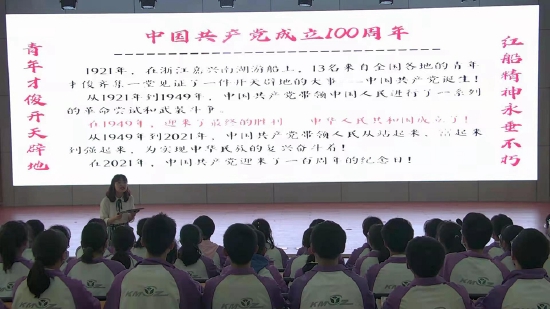 中国共产党成立100周年
青年才俊开天辟地
1921年，在浙江嘉兴南湖游船上，13名来自全国各地的青年
才俊齐聚一堂见证了一件开天辟地的大事——中国共产党诞生！
从1921年到1949年，中国共产党带领中国人民进行了一系列
的革命尝试和武装斗争。
在1949年，迎来了最终的胜利——中华人民共和国成立了！
从1949年到2021年，中国共产党带领人民从站起来、富起来
到强起来，为实现中华民族的复兴奋斗着！
在2021年，中国共产党迎来了一百周年的纪念日！
红船精神永垂不朽